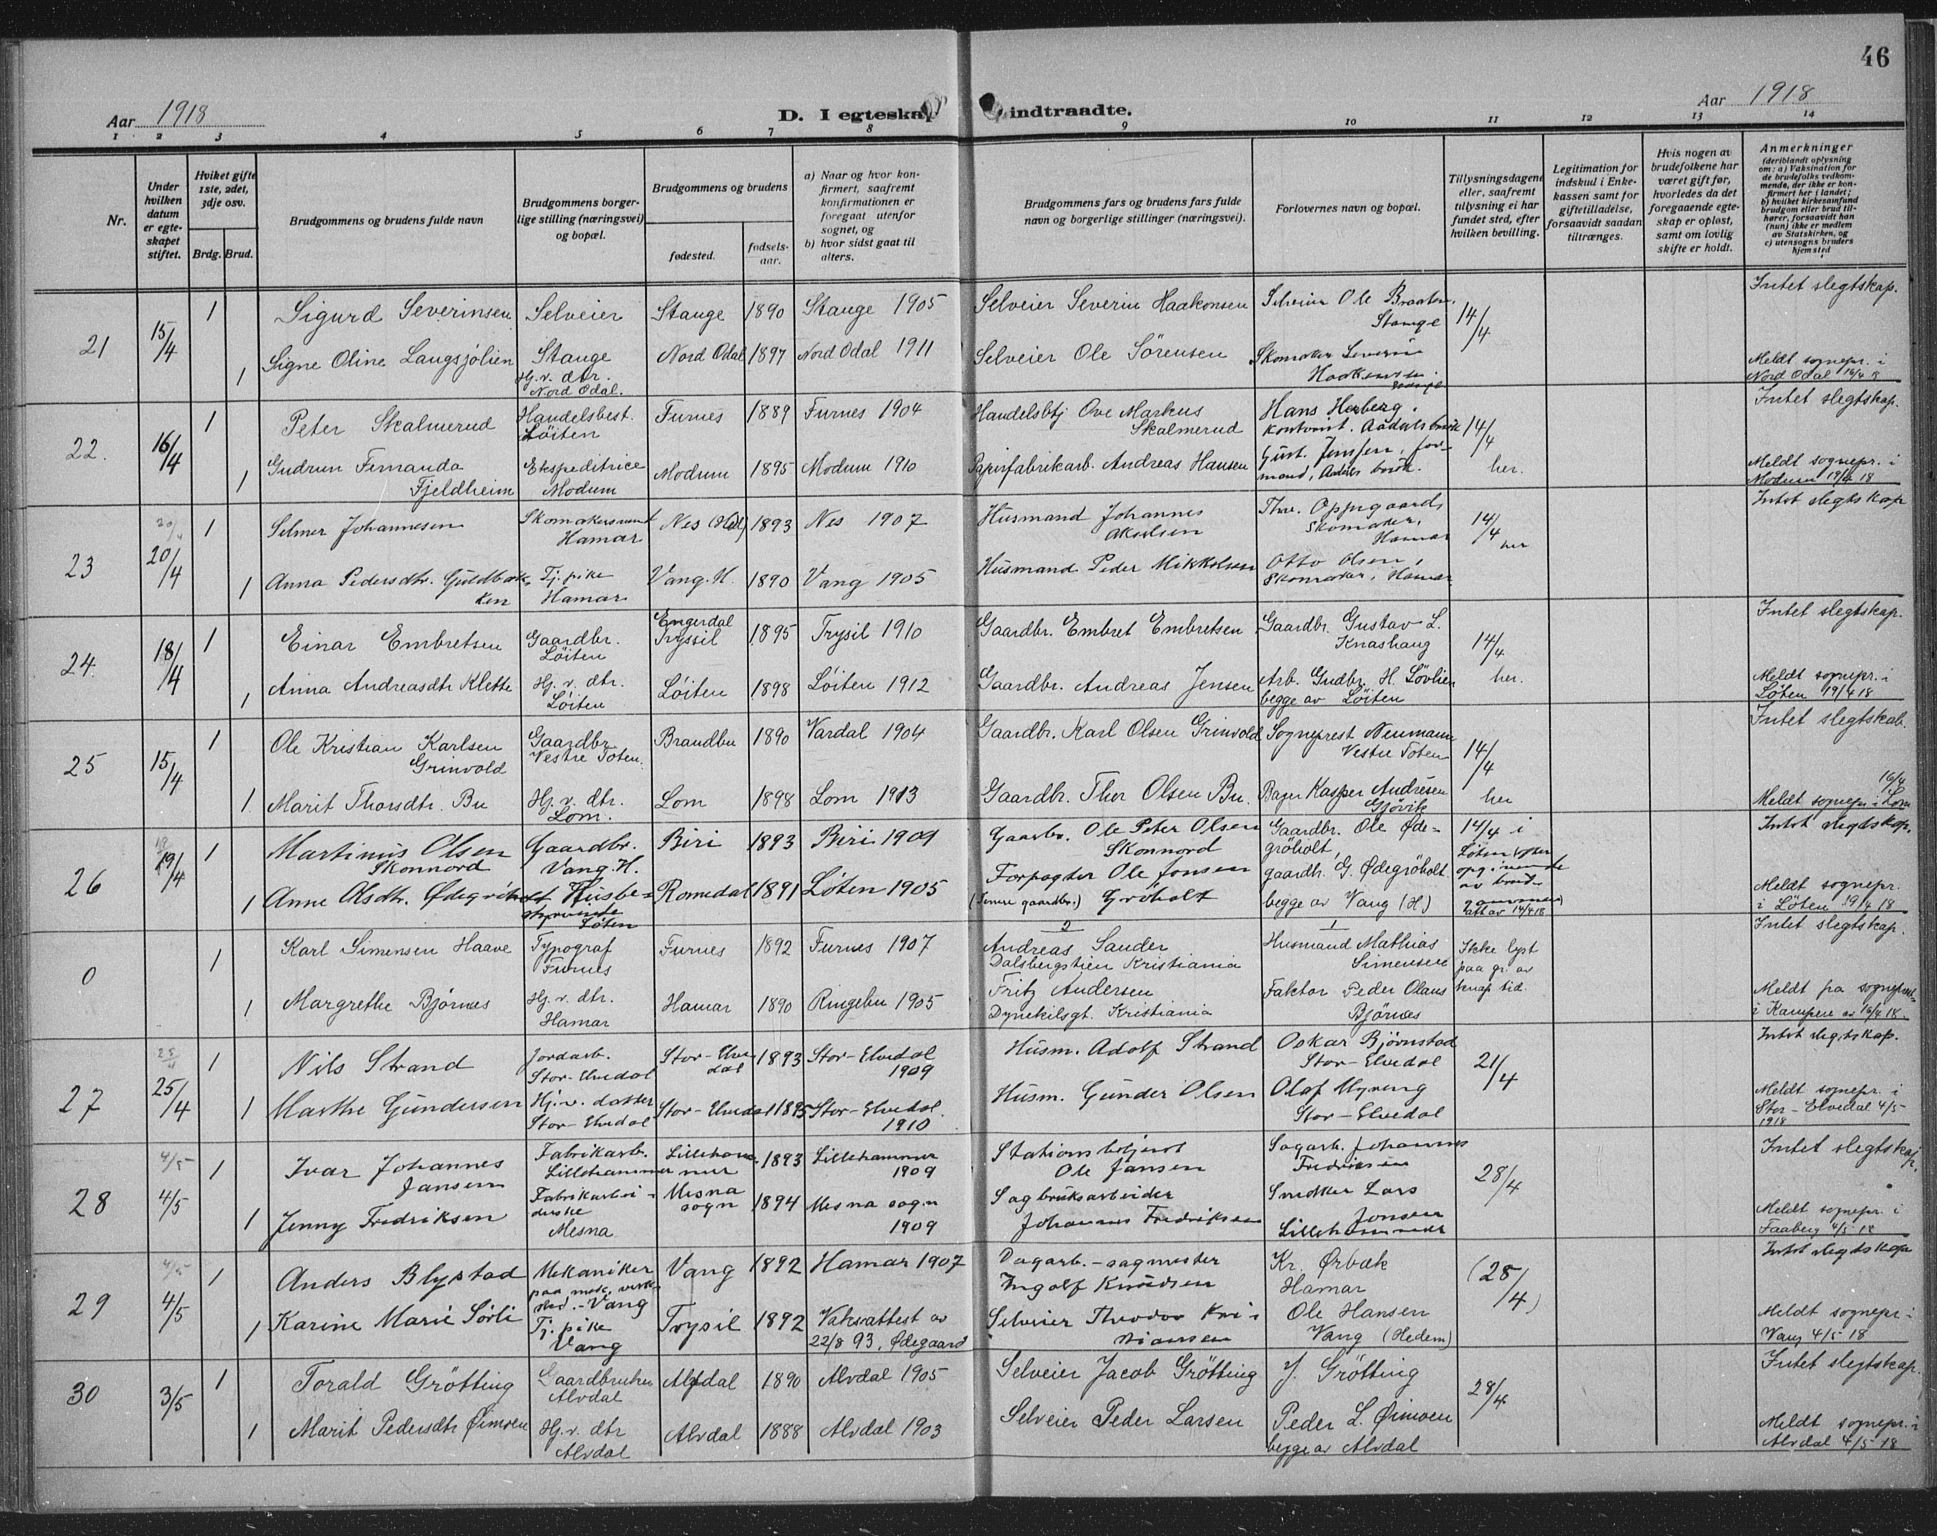 46
Aar 1918
D. I egteskap indtraadte.
Aar 1918
1 2 3 4 5 6 7 8 9 10 11 12 13 14
Nr.
Under hvilken datum er egteskapet stiftet.
Hviket gifte 1ste, 2det, 3dje osv.
Brdg. Brud.
Brudgommens og brudens fulde navn
Brudgommens borgerlige stilling (næringsvei) og bopæl.
Brudgommens og brudens
fødested.
fødselsaar.
a) Naar og hvor konfirmert, saafremt konfirmationen er foregaat utenfor sognet, og
b) hvor sidst gaat til alters.
Brudgommens fars og brudens fars fulde navn og borgerlige stillinger (næringsvei).
Forlovernes navn og bopæl.
Tillysningsdagene eller, saafremt tillysning ei har fundet sted, efter hvilken bevilling.
Legitimation for indskud i Enkekassen samt for giftetilladelse, forsaavidt saadan tiltrænges.
Hvis nogen av brudefolkene har været gift før, hvorledes da det foregaaende egteskap er opløst, samt om lovlig skifte er holdt.
Anmerkninger
(deriblandt oplysning om: a) Vaksination for de brudefolks vedkommende, der ikke er konfirmert her i landet; b) hvilket kirkesamfund brudgom eller brud tilhører, forsaavidt han (hun) ikke er medlem av Statskirken, og c) utensogns bruders hjemsted
21 15/4 1 Sigurd Severinsen Selveier Stange 1890 Stange 1905 Selveier Severin Haakonsen Selveier Ole Braaten, Stange 14/4 Intet slegtskap.
1 Signe Oline Langsjølien Stange Hj.v. dtr. Nord Odal. Nord Odal 1897 Nord Odal 1911 Selveier Ole Sörensen Skomaker Severin Haakensen Meldt sognepr. i Nord Odal 16/4 18
22. 16/4 1 Peter Skalmerud Handelsbest. Löiten Furnes 1889 Furnes 1904 Handelsbtj Ove Markus Skalmerud Hans Herberg, kontorist. 14/4 Intet slegtskap.
1 Gudrun Fernanda Fjeldheim Ekspeditrice Modum Modum 1895 Modum 1910 Papirfabrikarb. Andreas Hansen Gust. Jensen, formand, her. Meldt sognepr. i Modum 17/4 18
23 20/4 20/4 1 Selmer Johannesen Hamar Nes (Hed) 1893 Nes 1907 Husmand Johannes Akselsen Thv. Oppegaard, Skomaker, Hamar 14/4 her Intet slegtskap
1 Anna Pedersdtr. Guldbakken Tj. pike Hamar Vang. H. 1890 Vang 1905 Husmand Peder Mikkelsen Otto Olsen, Skomaker, Hamar
24. 18/4 1 Einar Embretsen Gaardbr. Löiten Engerdal Tryssil 1895 Trysil 1910 Gaardbr. Embret Embretsen Gaardbr. Gustav L. Knashaug 14/4 Intet slegtskap.
1 Anna Andreasdtr Klette Hj. v. dtr. Löiten Löiten 1898 Löiten 1912 Gaardbr. Andreas Jensen Arb. Gudbr. H. Lövlien begge av Löiten her. Meldt sognepr. i Löten 19/4 18
25 15/4 1 Ole Kristian Karlsen Grinvold Gaardbr. Vestre Toten. Brandbu 1890 Vardal 1904 Gaardbr. Karl Olsen Grinvold Sogneprest Neumann Vestre Toten 14/4 Intet slegtskab.
1. Marit Thorsdtr. Bu Hj. v. dtr. Lom. Lom 1898 Lom 1913 Gaardbr. Thor Olsen Bu. Bager Kasper Andresen Gjövik her 16/4 Meldt sognepr. i Lom
26 18 19/4 1 Martinus Olsen Skonnord Gaardbr. Vang. H. Biri 1893 Biri 1909 Gaarbr. Ole Peter Olsen Skonnord Gaardbr. Ole Ødegröholt, 14/4 i Löten Intet slegtskap.
1 Anne Olsdtr. Ødegröholt Husbestyrerinde Löten Romedal 1891 Löten 1905 Forpagter Ole Jonsen (Senere gaardbr.) Gröholt gaardbr. G. Ødegröholt begge av Vang (H) Meldt sognepr. i Löten 19/4 18
0 1 Karl Simensen Haave Typograf Furnes Furnes 1892 Furnes 1907 2 Andreas Sander Dalsbergstien Kristiania 1 Husmand Mathias Simensen Ikke lyst paa gr. av knap tid. Intet slegtskap.
1 Margrethe Bjørnes Hj. v. dtr. Hamar Hamar 1890 Ringebu 1905 Fritz Andersen Dynekilsgt. Kristiania Faktor Peder Olaus Bjørnes Meldt fra sognepr. i Kampen av 16/4 18.
27 25/4 25/4 1 Nils Strand Jordarb. Stor-Elvedal Stor-Elvedal 1893 Stor-Elvedal 1909 Husm. Adolf Strand Oskar Bjørnstad Stor-Elvedal 21/4 Intet slegtskap.
1 Marthe Gundersen Hj. v. datter Stor-Elvedal Stor-Elvedal 1895 Stor-Elvedal. 1910 Husm. Gunder Olsen Olaf Myreng Stor-Elvedal Meldt sognepr. i Stor-Elvedal 4/5 1918
28 4/5 4/5 1 Ivar Johannes Jansen Fabrikarb. Lillehammer Lillehammer 1893 Lillehammer 1909 Stationsbetjent Ole Jansen Sagarb. Johannes Fredriksen 28/4 Intet slegtskap.
1 Jenny Fredriksen Fabrikarbeiderske Mesna Mesna sogn 1894 Mesna sogn 1909 Sagbruksarbeider Johannes Fredriksen Snedker Lars Jonsen Lillehammer Meldt sognepr. i Faaberg 4/5 18
29 4/5 4/5 1 Anders Blystad Mekaniker paa mek. verksted.-Vang Vang 1892 Hamar 1907 Dagarb.-sagmester Ingolf Knudsen Kr. Ørbæk Hamar (28/4) Intet slegtskap
1 Karine Marie Sørli Tj. pike Vang Trysil 1892 Vaksattest av 22/8 93. Ødegaard Selveier Theodor Kristiansen Ole Hansen Vang (Hedem) Meldt sognepr. i Vang 4/5 18
30 3/5 1 Torald Grötting Gaardbruker Alvdal Alvdal 1890 Alvdal 1905 Selveier Jacob Grötting J. Grötting 28/4 Intet slegtskap.
1 Marit Pedersdtr Øimoen Hj. v. dtr Alvdal Alvdal 1888 Alvdal 1903 Selveier Peder Larsen Peder L. Øimoen begge av Alvdal Meldt sognepr. i Alvdal 4/5 18